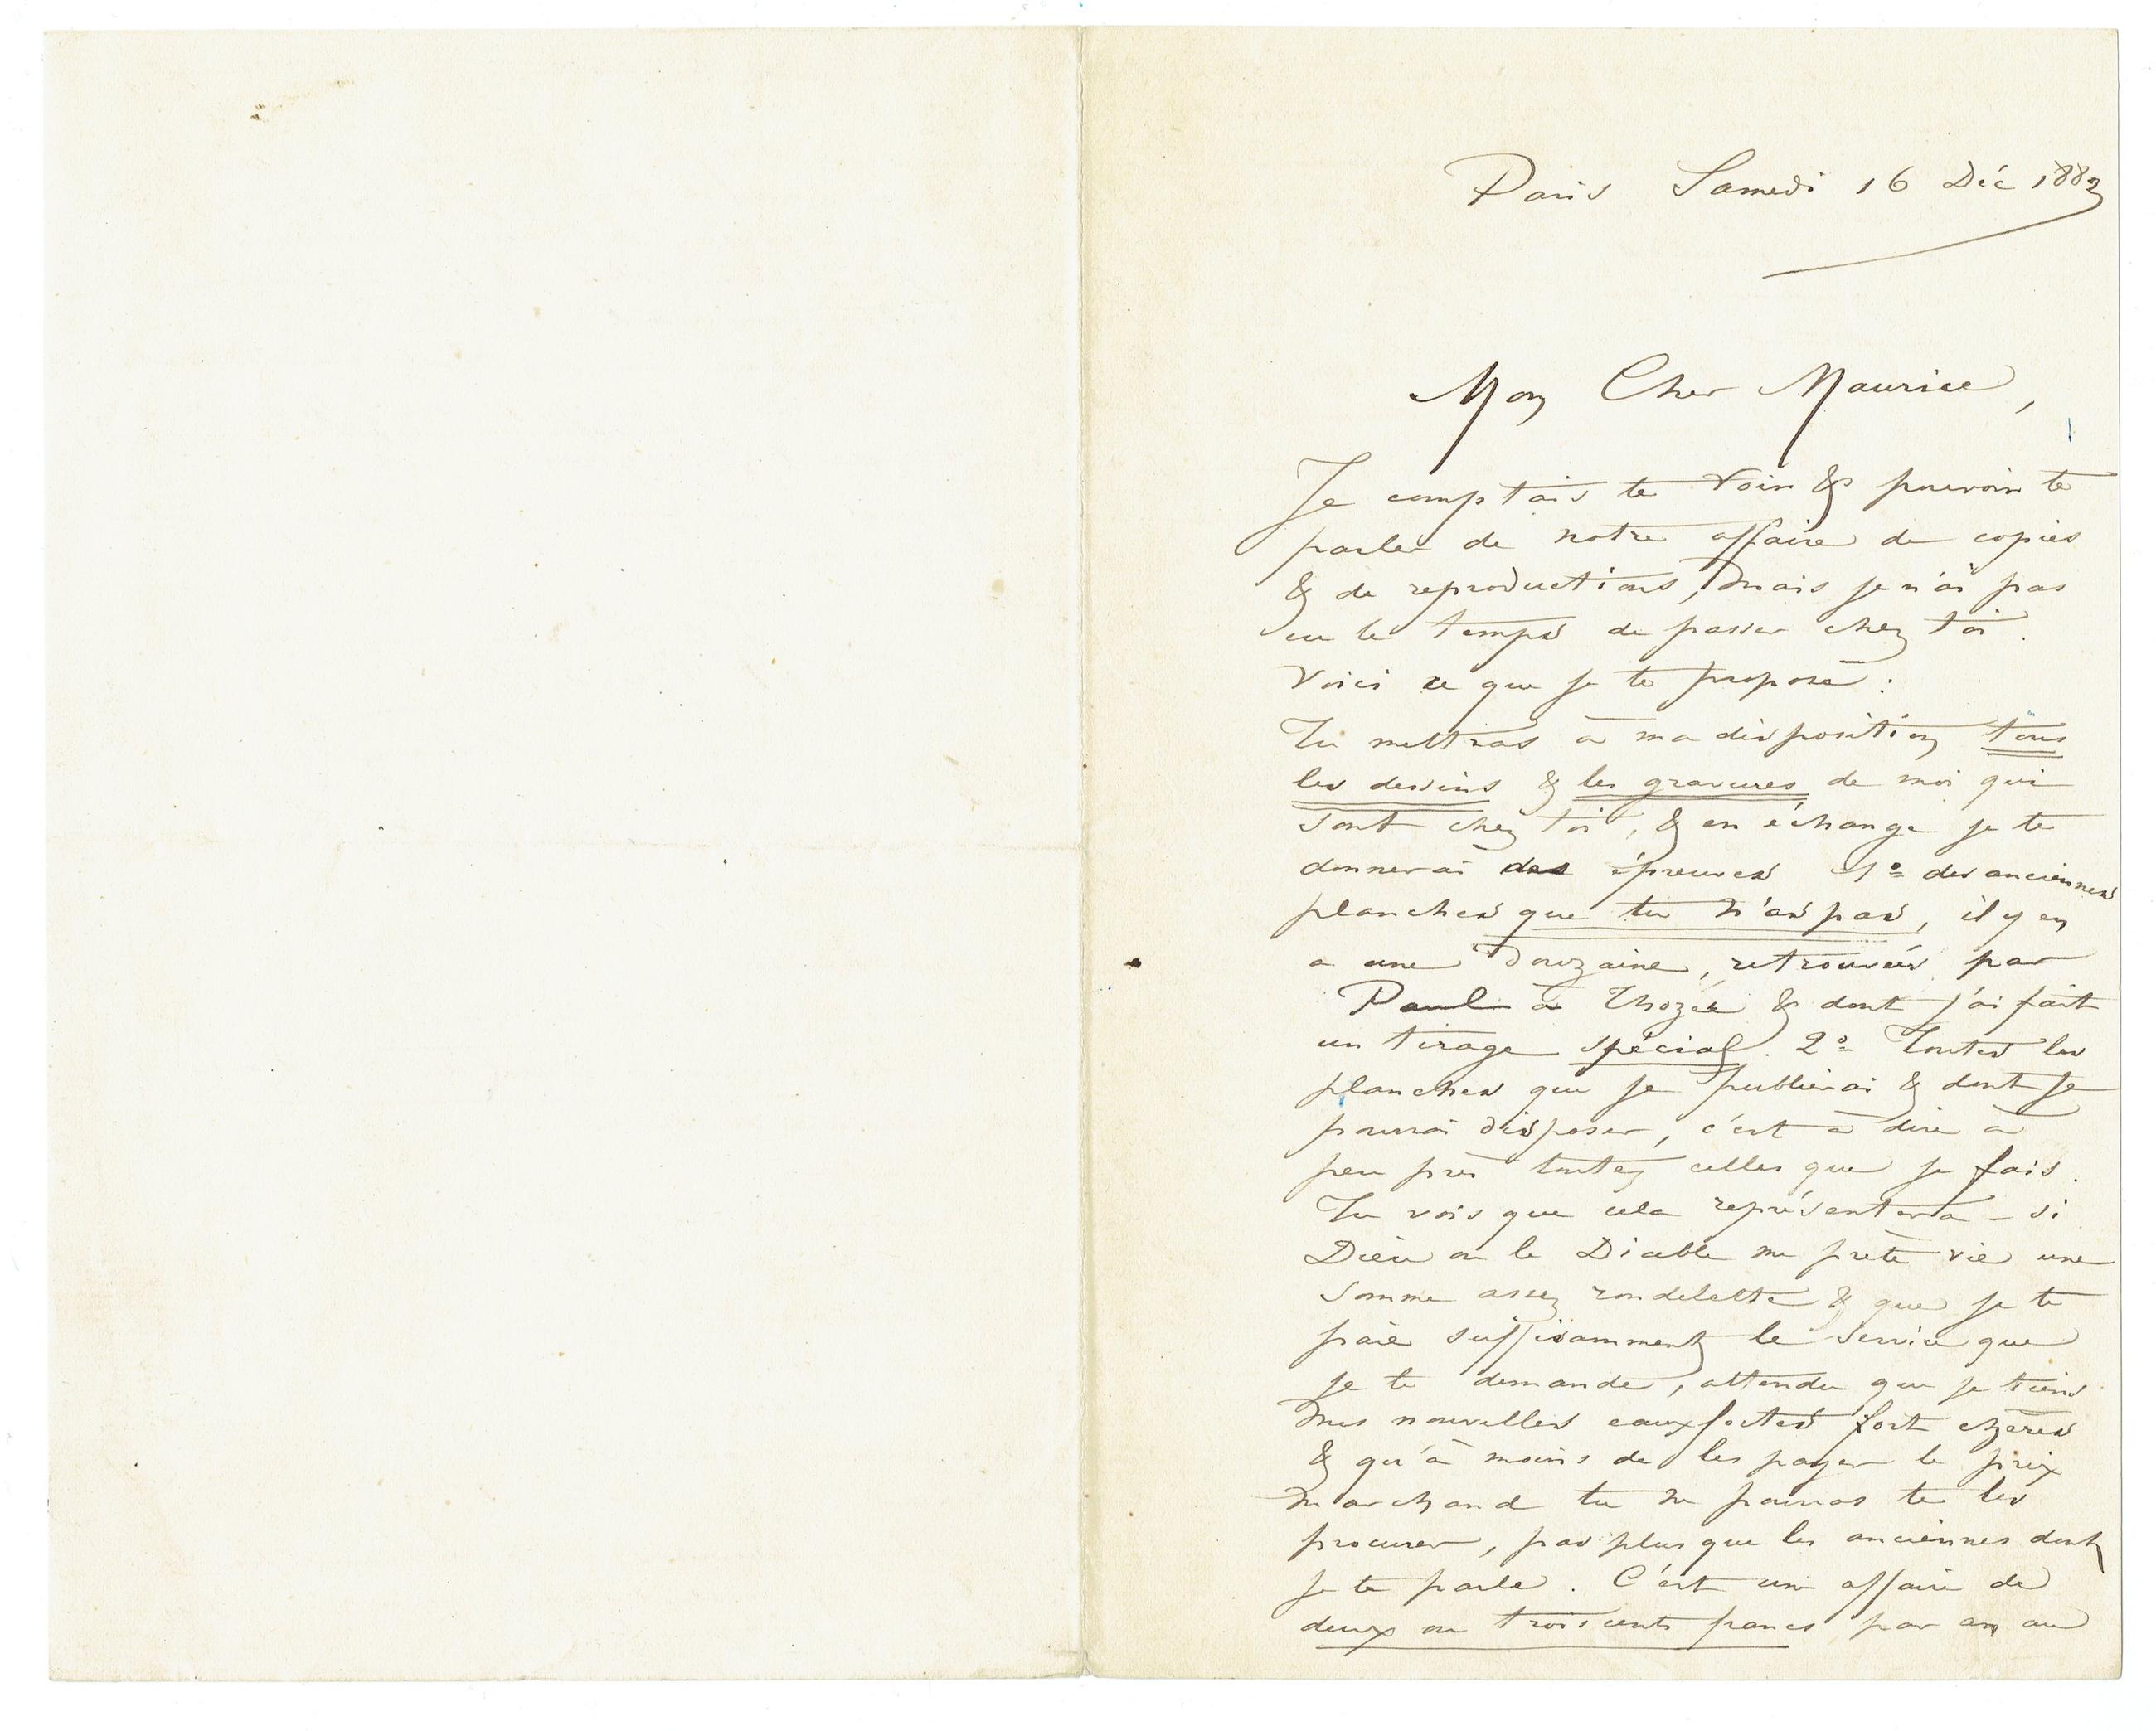 Paris Samedi 16 Déc 1882
Mon Cher Maurice,
Je comptais te voir & pouvoir te
parler de notre affaire de copies
& de reproductions, mais je n'ai pas
eu le temps de passer chez toi.
Voici ce que je te propose :
Tu mettras à ma disposition tous
les dessins & les gravures de moi qui
sont chez toi, & en échange je te
donnerai des épreuves 1º des anciennes
planches que tu n'as pas, il y en
a une douzaine, retrouvées par
Paul à Thozée & dont j'ai fait
un tirage spécial. 2º Toutes les
planches que je publierai & dont je
pourrai disposer, c'est à dire à
peu près toutes celles que je fais.
Tu vois que cela représentera – si
Dieu ou le Diable me prête vie une
somme assez rondelette & que je te
paie suffisamment le service que
je te demande, attendu que je tiens
mes nouvelles eaux fortes fort chères
& qu'à moins de les payer le prix
marchand tu ne pourras te les
procurer, pas plus que les anciennes dont
je te parle. C'est une affaire de
deux ou trois cents francs par an au